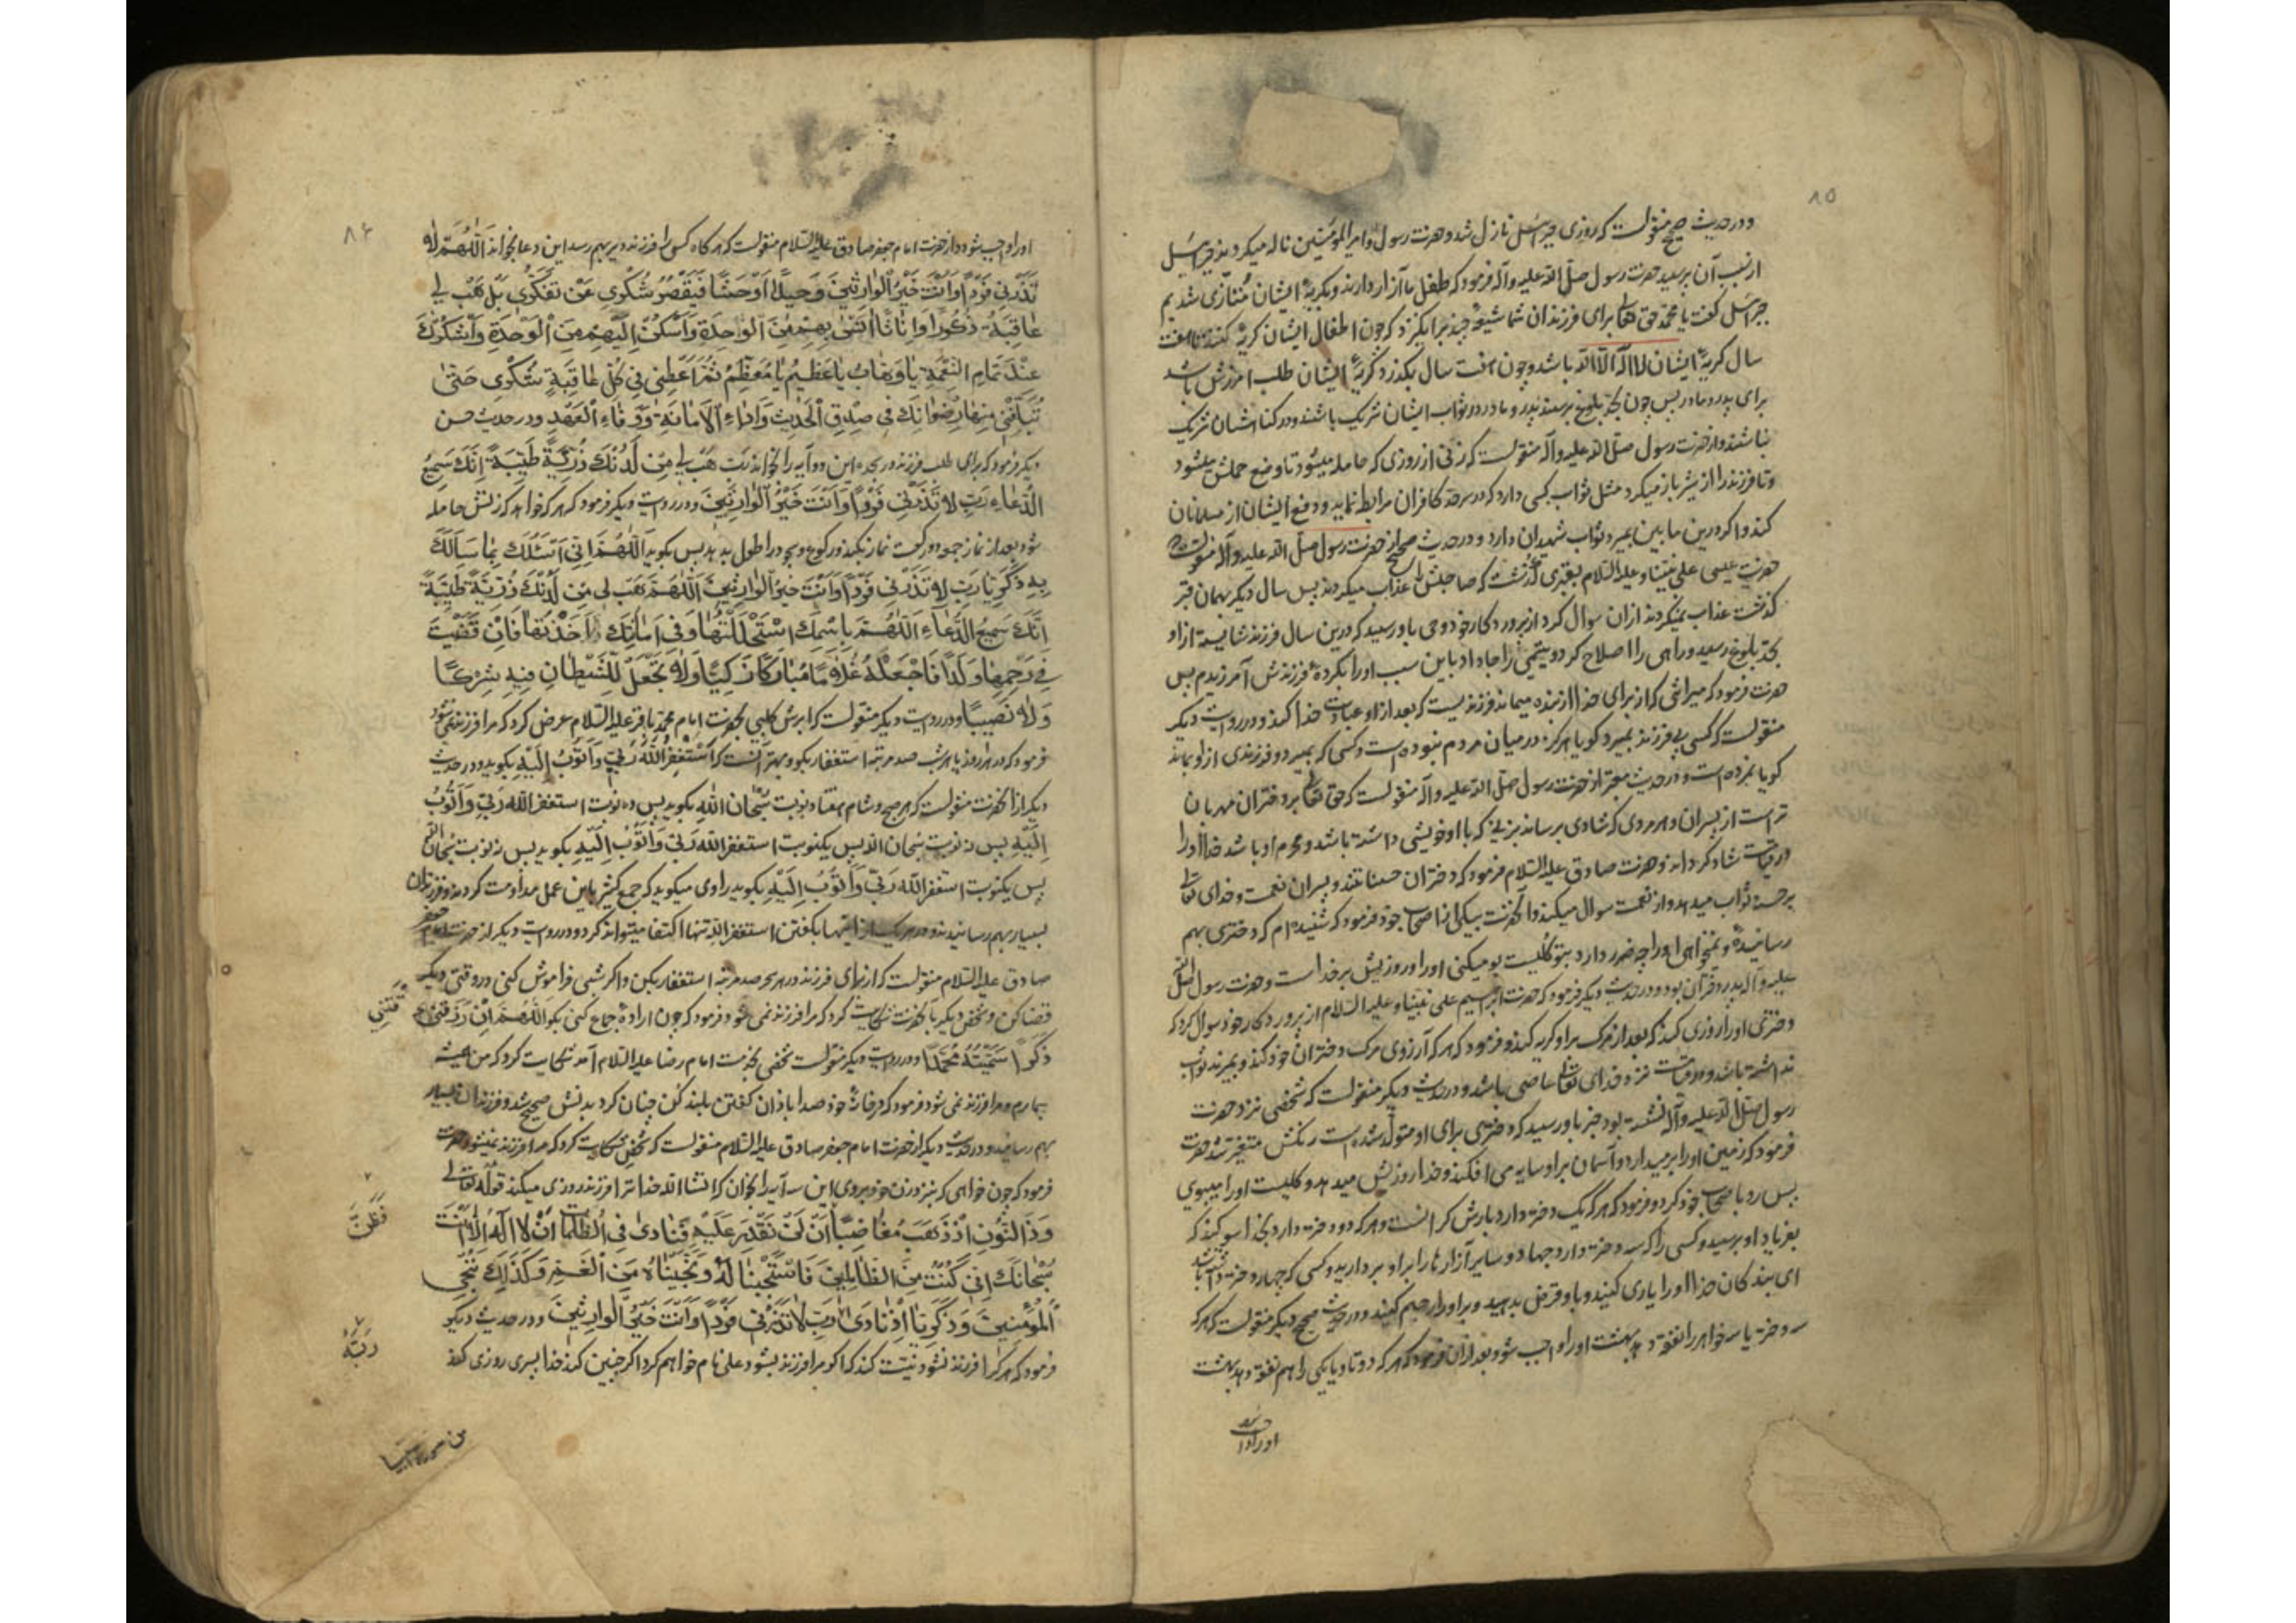 ۸۵
و در حدیث صحیح منقولست که روزی جبرئیل نازل شد و حضرت رسول و امیرالمؤمنین ناله میکردند جبرئیل
از سبب آن پرسید حضرت رسول صلی الله علیه و آله فرمود که طفل ما آزار دارند و بگریهٔ ایشان متأذی شدیم
جبرئیل گفت یا محمد حق تعالی برای فرزندان شما شیعهٔ چند برانگیزد که چون اطفال ایشان گریه کنند تا هفت
سال گریهٔ ایشان لا اله الا الله باشد و چون هفت سال بگذرد گریهٔ ایشان طلب آمرزش باشد
برای پدر و مادر پس چون بحد بلوغ برسند پدر و مادر در ثواب ایشان شریک باشند و در گناه ایشان شریک
نباشند و از حضرت رسول صلی الله علیه و آله منقولست که زنی از روزی که حامله میشود تا وضع حملش میشود
و تا فرزند را از شیر باز میگرد مثل ثواب کسی دارد که در سرحد کافران مرابطه نماید و دفع ایشان از مسلمانان
کند و اگر درین مابین بمیرد ثواب شهیدان دارد و در حدیث صحیح از حضرت رسول صلی الله علیه و آله منقولست که
حضرت عیسی علی نبینا و علیه السلام بقبری گذشت که صاحبش را عذاب میکردند پس سال دیگر بهمان قبر
گذشت عذاب نمیکردند ازان سوال کرد از پروردگار خود وحی باو رسید که درین سال فرزند شایسته از او
بحد بلوغ رسید و راهی را اصلاح کرد و یتیمی را جا داد باین سبب او را بکردهٔ فرزندش آمرزیدم پس
حضرت فرمود که میراثی که از برای خدا از بنده میماند فرزندیست که بعد از او عبادت خدا کند و در روایت دیگر
منقولست که کسی بی فرزند بمیرد گویا هرگز در میان مردم نبوده است و کسی که بمیرد و فرزندی از او بماند
گویا نمرده است و در حدیث معتبر از حضرت رسول صلی الله علیه و آله منقولست که حق تعالی بر دختران مهربان
تر است از پسران و هر مردی که شادی برساند بزنی که با او خویشی داشته باشد و محرم او باشد خدا او را
در قیامت شاد گرداند و حضرت صادق علیه السلام فرمود که دختران حسناتند و پسران نعمت و خدای تعالی
بر حسنه ثواب میدهد و از نعمت سوال میکند و آنحضرت بیکی از اصحاب خود فرمود که شنیده ام که دختری بهم
رسانیدهٔ و نمیخواهی او را چه ضرر دارد بتو گلیست بو میکنی او را و روزیش بر خداست و حضرت رسول صلی الله
علیه و آله پدر دختران بود و در حدیث دیگر فرمود که حضرت ابراهیم علی نبینا و علیه السلام از پروردگار خود سوال کرد که
دختری او را روزی کند که بعد از مرگ بر او گریه کند و فرمود که هر که آرزوی مرگ دختران خود کند و بمیرند ثواب
نداشته باشد و در قیامت نزد خدای تعالی عاصی باشد و در حدیث دیگر منقولست که شخصی نزد حضرت
رسول صلی الله علیه و آله نشسته بود خبر باو رسید که دختری برای او متولد شده است رنگش متغیر شد حضرت
فرمود که زمین او را بر میدارد و آسمان بر او سایه می افکند و خدا روزیش میدهد و گلیست او را میبوی
پس رو باصحاب خود کرد و فرمود که هر که یک دختر دارد بارش گرانست و هر که دو دختر دارد بخدا سوگند که
بفریاد او برسید و کسی را که سه دختر دارد جهاد و سایر آزارها را بر او بردارید و کسی که چهار دختر داشته باشد
ای بندگان خدا او را یاری کنید و باو قرض بدهید و بر او رحم کنید و در حدیث صحیح دیگر منقولست که هر که
سه دختر یا سه خواهر را نفقه دهد بهشت او را واجب شود بعد ازان فرمود که هر که دو تا و یا یکی را هم نفقه دهد بهشت
او را واجب شود
۸۶
او را واجب شود و از حضرت امام جعفر صادق علیه السلام منقولست که هر گاه کسی را فرزند دیر بهم رسد این دعا بخواند اَللّٰهُمَّ لَا
تَذَرْنِی فَرْدًا وَاَنْتَ خَیْرُ الْوَارِثِینَ وَحِیدًا وَحْشًا فَیَقْصُرُ شُکْرِی عَنْ تَفَکُّرِی بَلْ هَبْ لِی
عَاقِبَةَ ذُکُورًا وَاِنَاثًا اٰنَسُ بِهِمْ مِنَ الْوَحْدَةِ وَاَسْکُنُ اِلَیْهِمْ مِنَ الْوَحْدَةِ وَاَشْکُرُکَ
عِنْدَ تَمَامِ النِّعْمَةِ یَا وَهَّابُ یَا عَظِیمُ یَا مُعَظِّمُ ثُمَّ اَعْطِنِی فِی کُلِّ عَاقِبَةٍ شُکْرِی حَتّٰی
تُبَلِّغَنِی مِنْهَا رِضْوَانَکَ فِی صِدْقِ الْحَدِیثِ وَاَدَاءِ الْاَمَانَةِ وَوَفَاءِ الْعَهْدِ و در حدیث حسن
دیگر فرمود که برای طلب فرزند در سجده این دو آیه را بخواند رَبِّ هَبْ لِی مِنْ لَدُنْکَ ذُرِّیَّةً طَیِّبَةً اِنَّکَ سَمِیعُ
الدُّعَاءِ رَبِّ لَا تَذَرْنِی فَرْدًا وَاَنْتَ خَیْرُ الْوَارِثِینَ و در روایت دیگر فرمود که هر که خواهد که زنش حامله
شود بعد از نماز جمعه دو رکعت نماز بکند و رکوع و سجود را طول بدهد پس بگوید اَللّٰهُمَّ اِنِّی اَسْئَلُکَ بِمَا سَاَلَکَ
بِهِ ذَکَرِیَّا رَبِّ لَا تَذَرْنِی فَرْدًا وَاَنْتَ خَیْرُ الْوَارِثِینَ اَللّٰهُمَّ هَبْ لِی مِنْ لَدُنْکَ ذُرِّیَّةً طَیِّبَةً
اِنَّکَ سَمِیعُ الدُّعَاءِ اَللّٰهُمَّ بِاسْمِکَ اسْتَحْلَلْتُهَا وَفِی اَمَانَتِکَ اَخَذْتُهَا فَاِنْ قَضَیْتَ
فِی رَحِمِهَا وَلَدًا فَاجْعَلْهُ غُلَامًا مُبَارَکًا زَکِیًّا وَلَا تَجْعَلْ لِلشَّیْطَانِ فِیهِ شِرْکًا
وَلَا نَصِیبًا و در روایت دیگر منقولست که ابرش کلبی بحضرت امام محمد باقر علیه السلام عرض کرد که مرا فرزند نمی شود
فرمود که در هر روز یا هر شب صد مرتبه استغفار بگو و بهتر آنست که اَسْتَغْفِرُ اللّٰهَ رَبِّی وَاَتُوبُ اِلَیْهِ بگوید و در حدیث
دیگر از آنحضرت منقولست که هر صبح و شام هفتاد نوبت سُبْحَانَ اللّٰهِ بگوید پس ده نوبت استغفر الله رَبِّی وَاَتُوبُ
اِلَیْهِ پس نه نوبت سُبحان الله پس یکنوبت استغفر الله رَبِّی وَاَتُوبُ اِلَیْهِ بگوید پس نه نوبت سُبحان الله
پس یکنوبت استغفر الله رَبِّی وَاَتُوبُ اِلَیْهِ بگوید راوی میگوید که جمع کثیر باین عمل مداومت کردند و فرزندان
بسیار بهم رسانیدند و در هر یک از اینها بگفتن استغفر الله تنها اکتفا میتواند کرد و در روایت دیگر از حضرت امام جعفر
صادق علیه السلام منقولست که از برای فرزند در هر سحر صد مرتبه استغفار بکن و اگر شبی فراموش کنی در وقتی دیگر
قضا کن و شخصی دیگر بآنحضرت شکایت کرد که مرا فرزند نمی شود فرمود که چون ارادهٔ جماع کنی بگو اَللّٰهُمَّ اِنْ رَزَقْتَنِی
ذَکَرًا سَمَّیْتُهُ مُحَمَّدًا و در روایت دیگر منقولست شخصی بخدمت امام رضا علیه السلام آمد شکایت کرد که من همیشه
بیمارم و مرا فرزند نمی شود فرمود که در خانهٔ خود صدا باذان گفتن بلند کن چنان کرد بدنش صحیح شد و فرزندان بسیار
بهم رسانید و در حدیث دیگر از حضرت امام جعفر صادق علیه السلام منقولست که شخصی شکایت کرد که مرا فرزند نمیشود حضرت
فرمود که چون خواهی که بنزد زن خود بروی این سه آیه را بخوان که انشاء الله خدا ترا فرزند روزی میکند قوله تعالی
وَذَا النُّونِ اِذْ ذَهَبَ مُغَاضِبًا اَنْ لَنْ نَقْدِرَ عَلَیْهِ فَنَادٰی فِی الظُّلُمَاتِ اَنْ لَا اِلٰهَ اِلَّا اَنْتَ
سُبْحَانَکَ اِنِّی کُنْتُ مِنَ الظَّالِمِینَ فَاسْتَجَبْنَا لَهُ وَنَجَّیْنَاهُ مِنَ الْغَمِّ وَکَذٰلِکَ نُنْجِی
الْمُؤْمِنِینَ وَذَکَرِیَّا اِذْ نَادٰی رَبِّ لَا تَذَرْنِی فَرْدًا وَاَنْتَ خَیْرُ الْوَارِثِینَ و در حدیث دیگر
فرمود که هر کرا فرزند نشود نیت کند که اگر مرا فرزند بشود علی نام خواهم کرد اگر چنین کند خدا پسری روزی کند
فَظَنَّ
رَبَّهُ